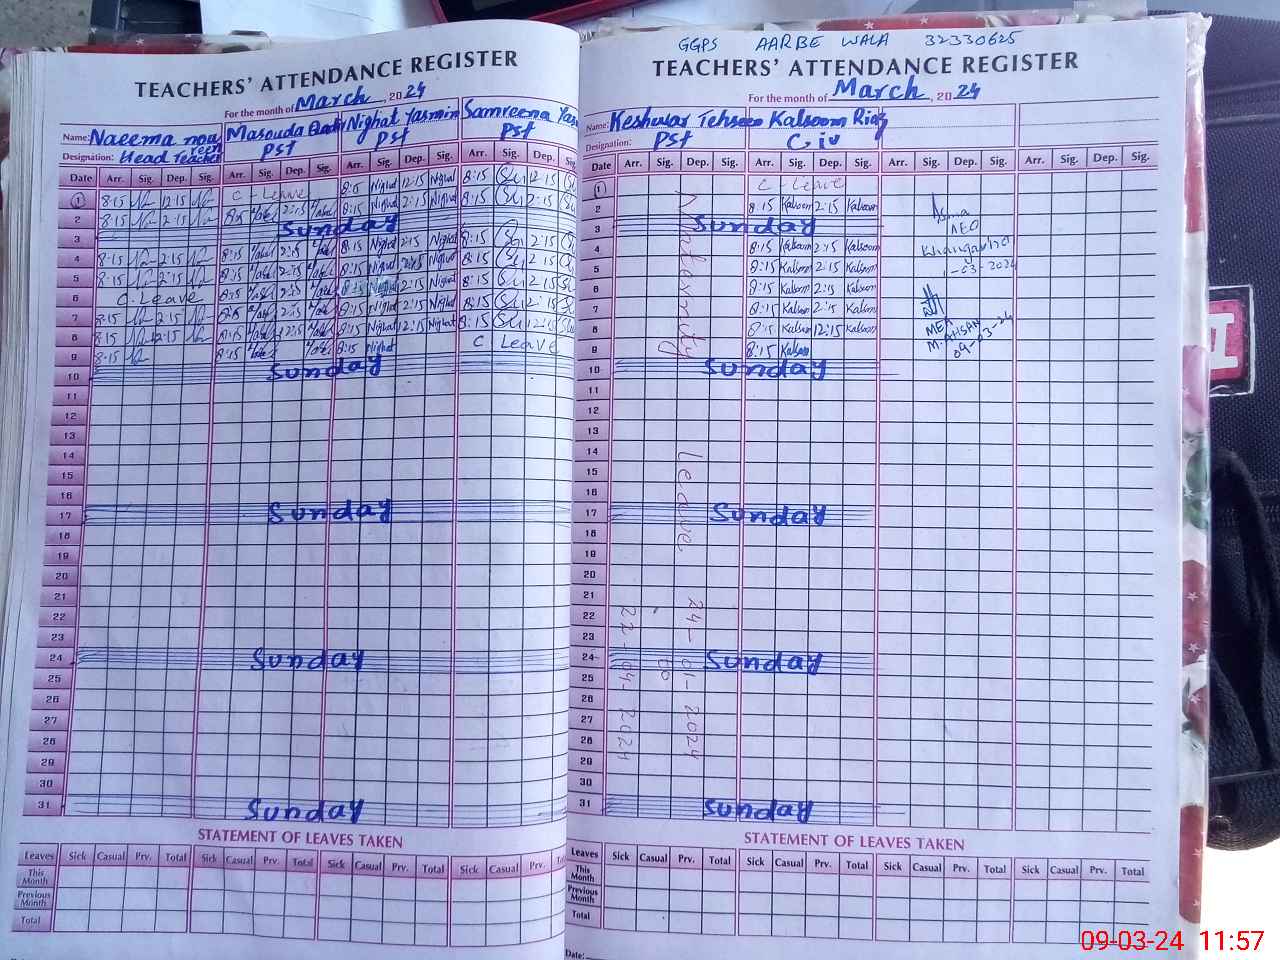 TEACHERS' ATTENDANCE REGISTER
For the month of March, 2024
Name: Naeema noureen Masouda Nighat Yasmin Samreena
Designation: Head Teacher Pst Pst Pst
Date Arr. Sig. Dep. Sig. Arr. Sig. Dep. Sig. Arr. Sig. Dep. Sig. Arr. Sig. Dep. Sig.
1 8-15 12-15 C-Leave 8:15 Nighat 12:15 Nighat 8:15 12:15
2 8-15 2-15 8:15 2:15 8:15 Nighat 2:15 Nighat 8:15 2:15
3 Sunday
4 8-15 2-15 8:15 2:15 8:15 Nighat 2:15 Nighat 8:15 2:15
5 8-15 2-15 8:15 2:15 8:15 Nighat 2:15 Nighat 8:15 2:15
6 C. Leave 8:15 2:15 8:15 Nighat 2:15 Nighat 8:15 2:15
7 8-15 2-15 8:15 2:15 8:15 Nighat 2:15 Nighat 8:15 2:15
8 8-15 12-15 8:15 12:15 8:15 Nighat 12:15 Nighat 8:15 12:15
9 8-15 8:15 8:15 Nighat C Leave
10 Sunday
11
12
13
14
15
16
17 Sunday
18
19
20
21
22
23
24 Sunday
25
26
27
28
29
30
31 Sunday
STATEMENT OF LEAVES TAKEN
Leaves Sick Casual Prv. Total Sick Casual Prv. Total Sick Casual Prv. Total Sick Casual Prv.
This Month
Previous Month
Total
GGPS AARBE WALA 32330625
TEACHERS' ATTENDANCE REGISTER
For the month of March, 2024
Name: Keshwar Tehseen Kalsoom Riaz
Designation: Pst C-iv
Date Arr. Sig. Dep. Sig. Arr. Sig. Dep. Sig. Arr. Sig. Dep. Sig. Arr. Sig. Dep. Sig.
1 C-Leave
2 8:15 Kalsoom 2:15 Kalsoom Asma
3 Sunday AEO
4 8:15 Kalsoom 2:15 Kalsoom
5 8:15 Kalsoom 2:15 Kalsoom 1-03-2024
6 8:15 Kalsoom 2:15 Kalsoom
7 8:15 Kalsoom 2:15 Kalsoom
8 8:15 Kalsoom 12:15 Kalsoom MEA
9 8:15 Kalsoom M.AHSAN
10 Sunday 09-03-24
11
12
13
14
15
16
17 Sunday
18
19
20
21
22
23
24 Sunday
25
26
27
28
29
30
31 Sunday
Maternity leave 24-01-2024
to
22-04-2024
STATEMENT OF LEAVES TAKEN
Leaves Sick Casual Prv. Total Sick Casual Prv. Total Sick Casual Prv. Total Sick Casual Prv. Total
This Month
Previous Month
Total
Date:
09-03-24 11:57